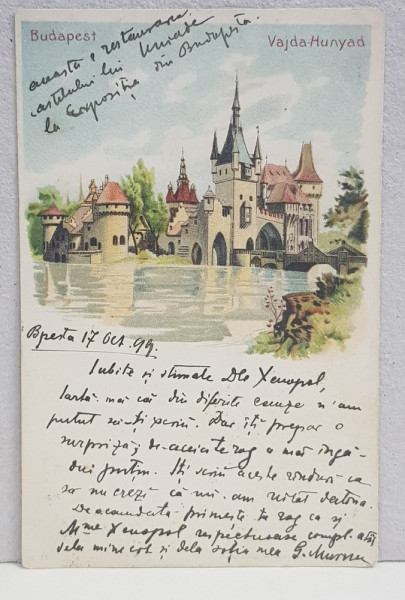 Budapest
Vajda-Hunyad
aceasta e restaurarea
castelului lui Huniade
la Expoziția din Budapesta.
Bpesta 17 Oct. 99.
Iubite și stimate Dle Xenopol,
Iartă-mă că din diferite cauze n'am
putut să-ți scriu. Dar îți prepar o
surpriză; de-aceia te rog a mai îngă-
dui puțin. Îți scriu aceste rînduri ca
să nu crezi că mi-am uitat datoria.
Deocamdată primește te rog ca și
Mme Xenopol respectuoase compl. atît
dela mine cît și dela soția mea G. Murnu